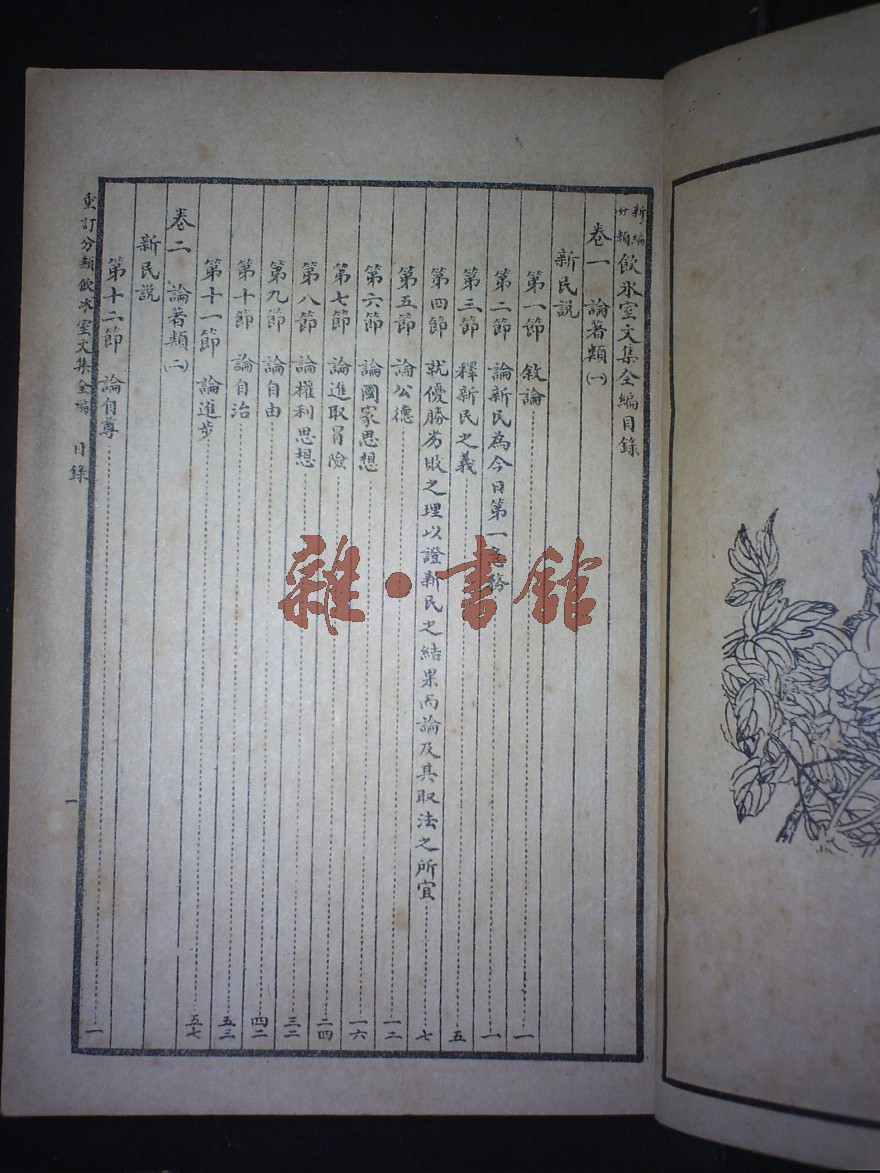 新編分類飲冰室文集全編目錄
卷一 論著類(一)
新民説
第一節 敘論 一
第二節 論新民為今日第一急務 一
第三節 釋新民之義 五
第四節 就優勝劣敗之理以證新民之結果而論及其取法之所宜 七
第五節 論公德 一二
第六節 論國家思想 一六
第七節 論進取冒險 二四
第八節 論權利思想 三二
第九節 論自由 四二
第十節 論自治 五三
第十一節 論進步 五七
卷二 論著類(二)
新民説
第十二節 論自尊 一
重訂分類飲冰室文集全編 目錄 一
雜·書館